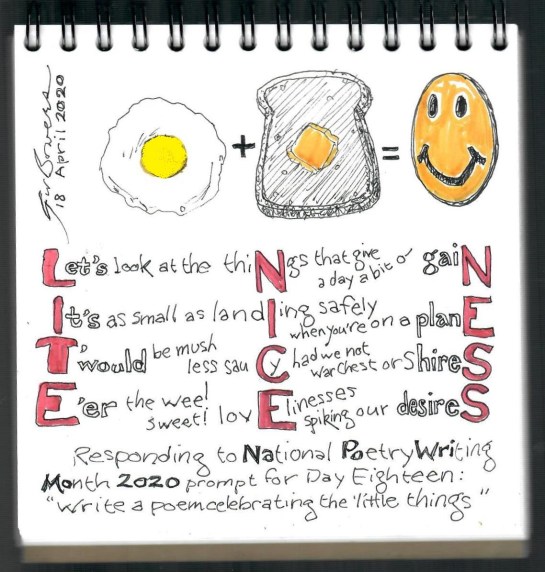 18 April 2020
+ =
Let's look at the thiNgs that give a day a bit o' gaiN
It's as small as landIng safely when you're on a planE
T'would be mush less sauCy had we not war chest or shireS
E'er the wee! sweet! lovElinesses spiking our desireS
Responding to National Poetry Writing
Month 2020 prompt for Day Eighteen:
"Write a poem celebrating the 'little things"